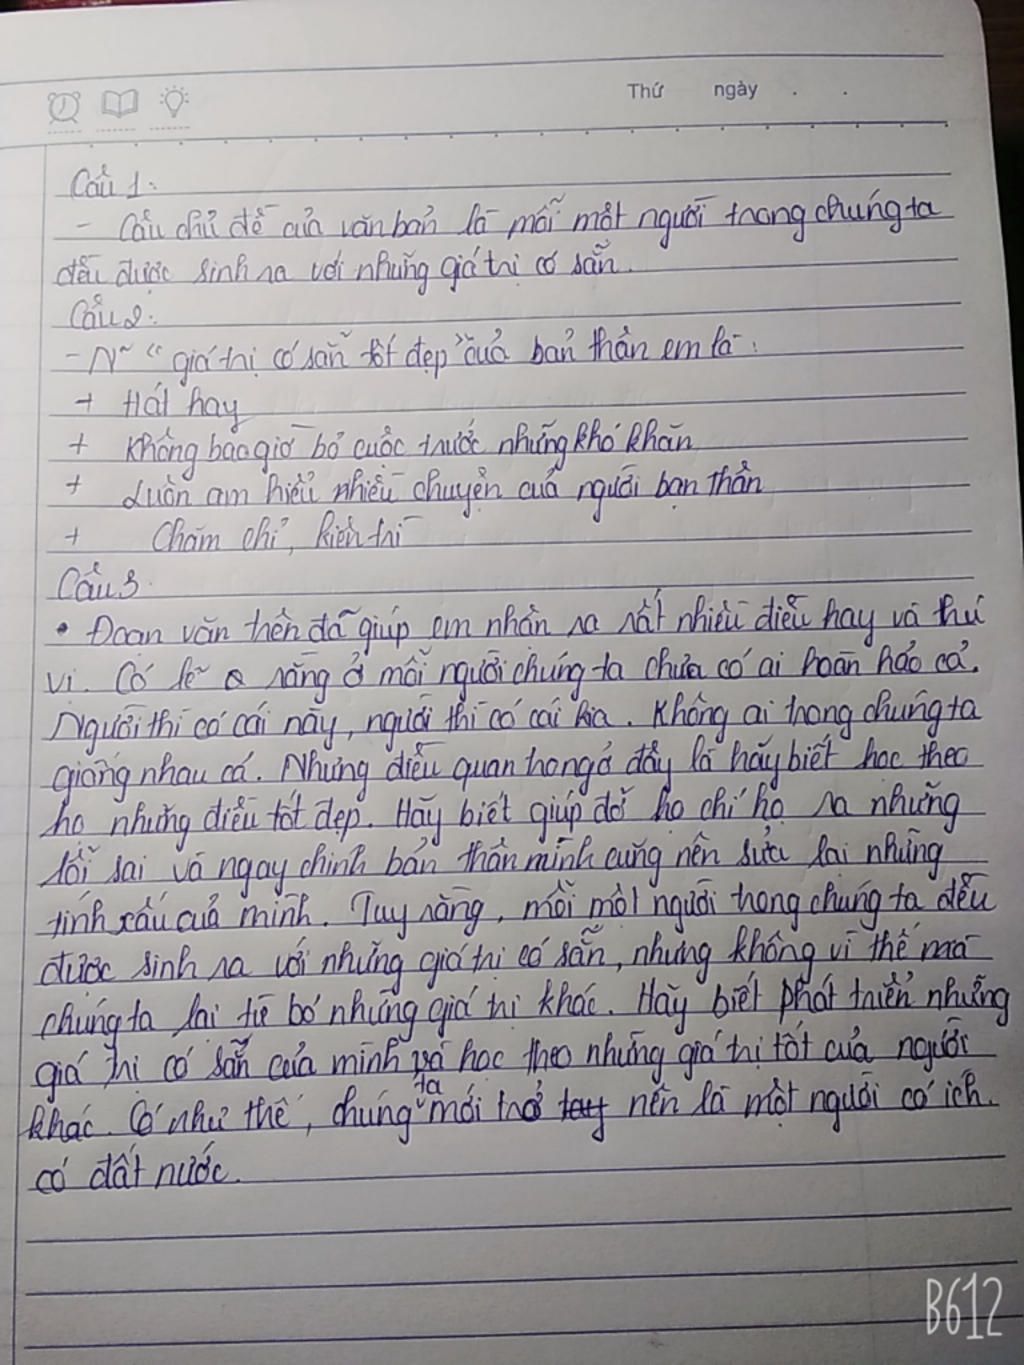 Thứ ngày . .
Câu 1:
- Câu chủ đề của văn bản là mỗi một người trong chúng ta
đều được sinh ra với những giá trị có sẵn.
Câu 2:
- N~ "giá trị có sẵn tốt đẹp" của bản thân em là:
+ Hát hay
+ Không bao giờ bỏ cuộc trước những khó khăn
+ Luôn am hiểu nhiều chuyện của người bạn thân
+ Chăm chỉ, kiên trì
Câu 3.
• Đoạn văn trên đã giúp em nhận ra rất nhiều điều hay và thú
vị. Có lẽ rằng ở mỗi người chúng ta chưa có ai hoàn hảo cả.
Người thì có cái này, người thì có cái kia. Không ai trong chúng ta
giống nhau cả. Nhưng điều quan trọng ở đây là hãy biết học theo
họ những điều tốt đẹp. Hãy biết giúp đỡ họ chỉ họ ra những
lỗi sai và ngay chính bản thân mình cũng nên sửa lại những
tính xấu của mình. Tuy rằng, mỗi một người trong chúng ta đều
được sinh ra với những giá trị có sẵn, nhưng không vì thế mà
chúng ta lại từ bỏ những giá trị khác. Hãy biết phát triển những
giá trị có sẵn của mình và học theo những giá trị tốt của người
khác. Có như thế, chúng ta mới trở nên là một người có ích.
có đất nước.
B612